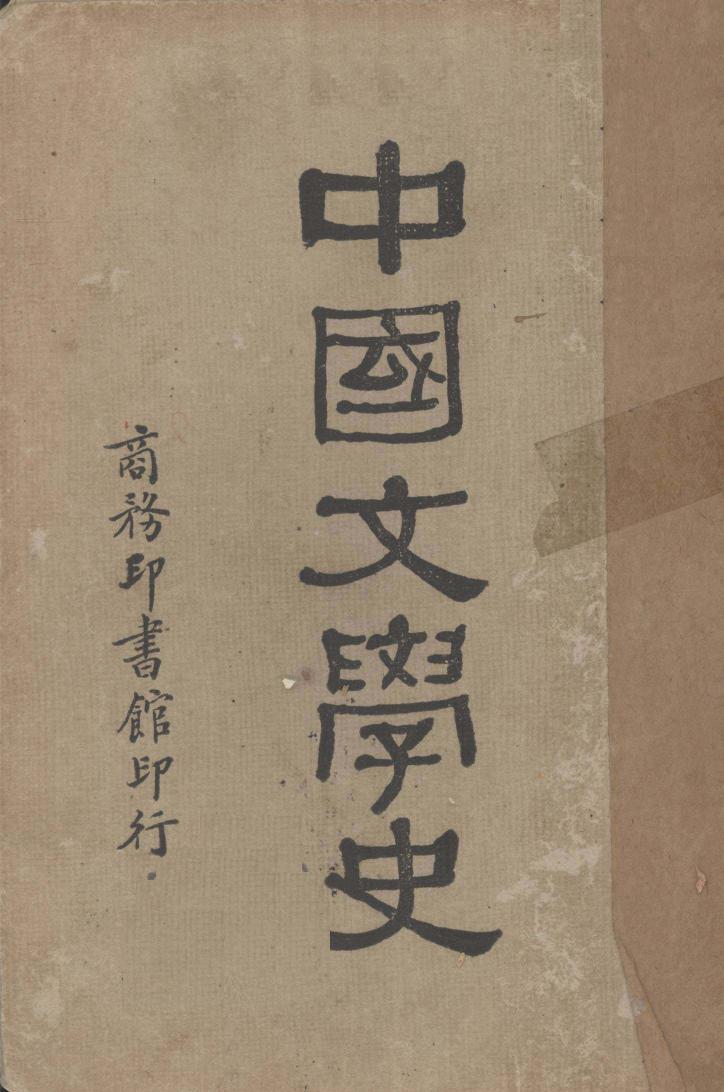 中國文學史
商務印書館印行